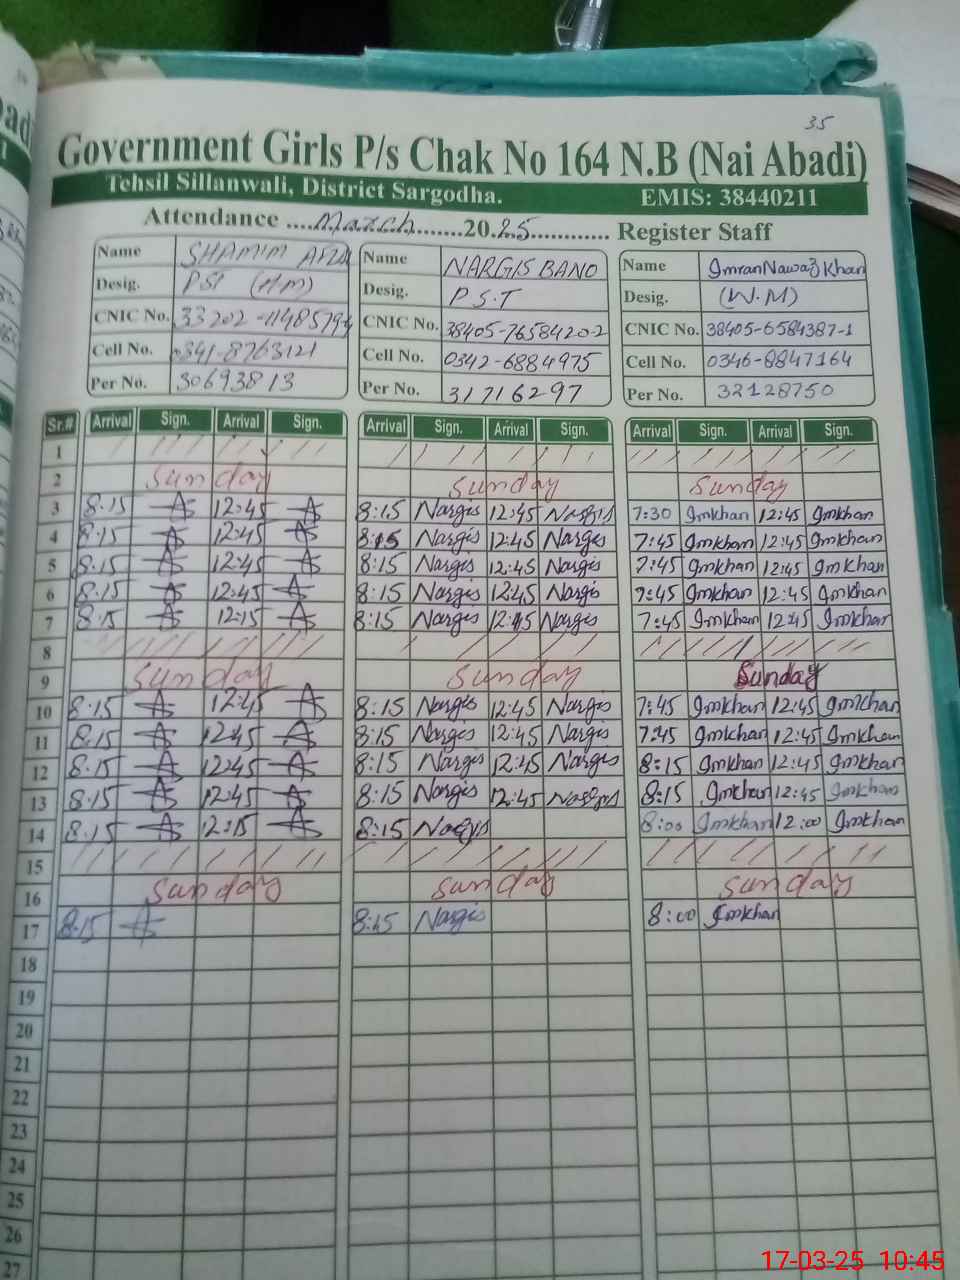 35
Government Girls P/s Chak No 164 N.B (Nai Abadi)
Tehsil Sillanwali, District Sargodha. EMIS: 38440211
Attendance ....March.......20.25............ Register Staff
Name SHAMIM Name NARGIS BANO Name Imran Nawaz Khan
Desig. PST (HM) Desig. P.S.T Desig. (W.M)
CNIC No. CNIC No. 38405-7658420-2 CNIC No. 38405-6584387-1
Cell No. 0341-8763121 Cell No. 0342-6884975 Cell No. 0346-8847164
Per No. 30693813 Per No. 31716297 Per No. 32128750
Sr.# Arrival Sign. Arrival Sign. Arrival Sign. Arrival Sign. Arrival Sign. Arrival Sign.
1
2 Sunday Sunday Sunday
3 8:15 12:45 8:15 Nargis 12:45 Nargis 7:30 Imkhan 12:45 Imkhan
4 8:15 12:45 8:15 Nargis 12:45 Nargis 7:45 Imkhan 12:45 Imkhan
5 8:15 12:45 8:15 Nargis 12:45 Nargis 7:45 Imkhan 12:45 Imkhan
6 8:15 12:45 8:15 Nargis 12:45 Nargis 7:45 Imkhan 12:45 Imkhan
7 8:15 12:15 8:15 Nargis Nargis 7:45 Imkhan 12:45 Imkhan
8
9 Sunday Sunday Sunday
10 8:15 12:45 8:15 Nargis 12:45 Nargis 7:45 Imkhan 12:45 Imkhan
11 8:15 12:45 8:15 Nargis 12:45 Nargis 7:45 Imkhan 12:45 Imkhan
12 8:15 12:45 8:15 Nargis 12:45 Nargis 8:15 Imkhan 12:45 Imkhan
13 8:15 12:45 8:15 Nargis 12:45 Nargis 8:15 Imkhan 12:45 Imkhan
14 8:15 12:15 8:15 Nargis 8:00 Imkhan 12:00 Imkhan
15
16 Sunday Sunday Sunday
17 8:15 8:15 Nargis 8:00 Imkhan
18
19
20
21
22
23
24
25
26
27
17-03-25 10:45